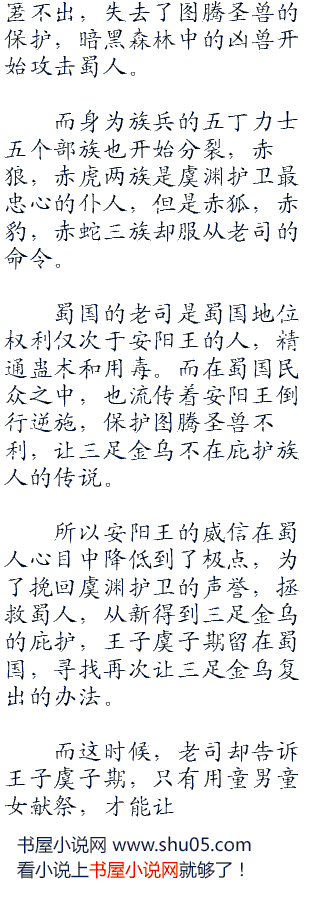 匿不出，失去了图腾圣兽的
保护，暗黑森林中的凶兽开
始攻击蜀人。
而身为族兵的五丁力士
五个部族也开始分裂，赤
狼，赤虎两族是虞渊护卫最
忠心的仆人，但是赤狐，赤
豹，赤蛇三族却服从老司的
命令。
蜀国的老司是蜀国地位
权利仅次于安阳王的人，精
通蛊术和用毒。而在蜀国民
众之中，也流传着安阳王倒
行逆施，保护图腾圣兽不
利，让三足金乌不在庇护族
人的传说。
所以安阳王的威信在蜀
人心目中降低到了极点，为
了挽回虞渊护卫的声誉，拯
救蜀人，从新得到三足金乌
的庇护，王子虞子期留在蜀
国，寻找再次让三足金乌复
出的办法。
而这时候，老司却告诉
王子虞子期，只有用童男童
女献祭，才能让
书屋小说网 www.shu05.com
看小说上书屋小说网就够了！